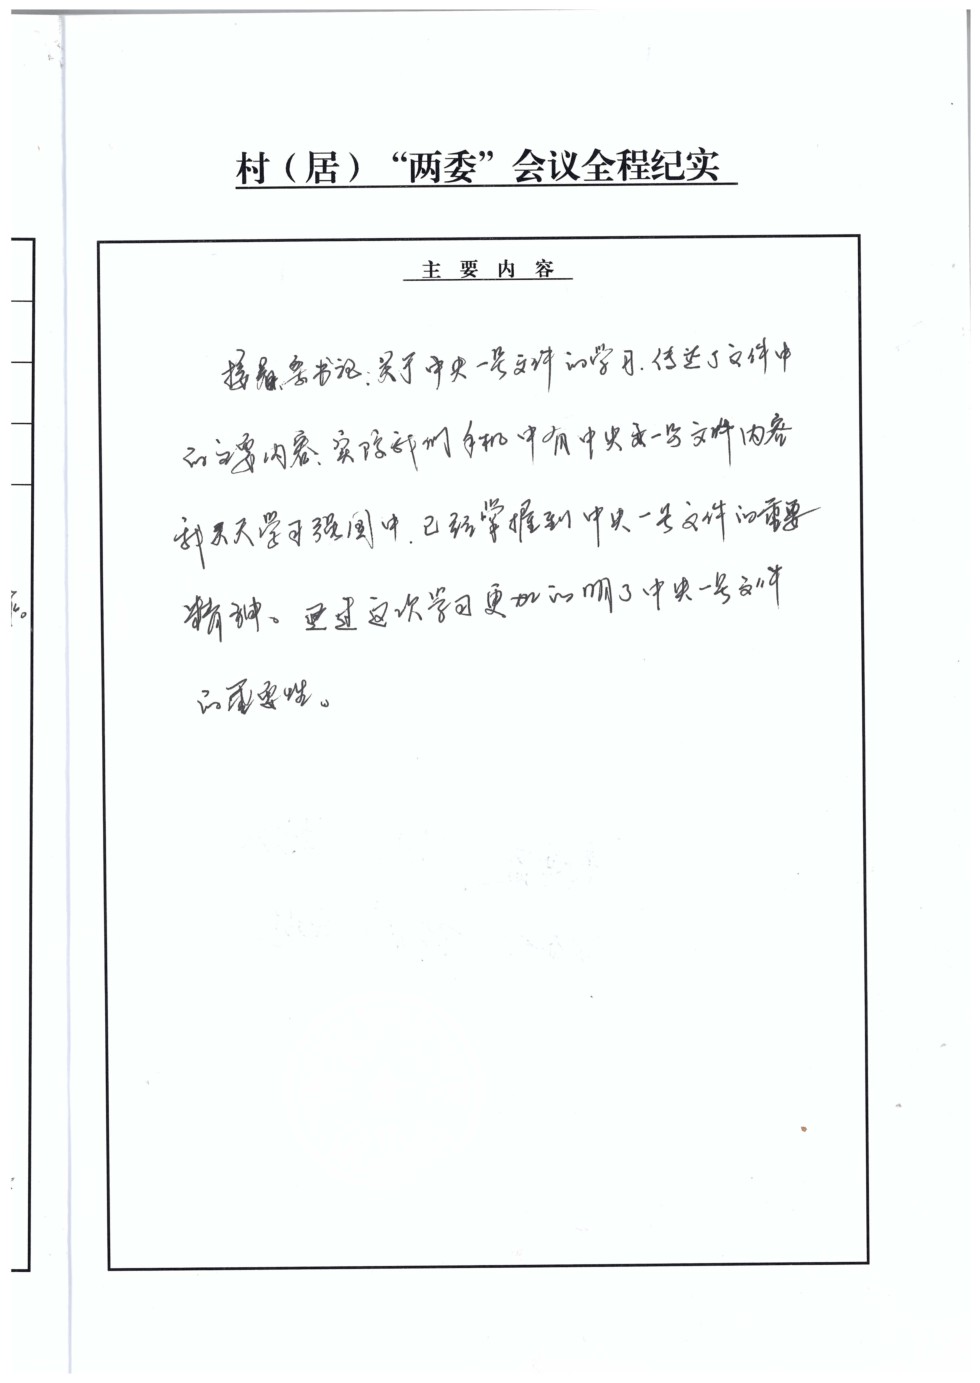 村（居）“两委”会议全程纪实
主要内容
书记：关于中央一号文件的学习，传达了文件中
的主要内容、实际我们手机中有中央一号文件内容
我天天学习强国中，已经掌握到中央一号文件的重要
精神。通过这次学习更加的明了中央一号文件
的重要性。